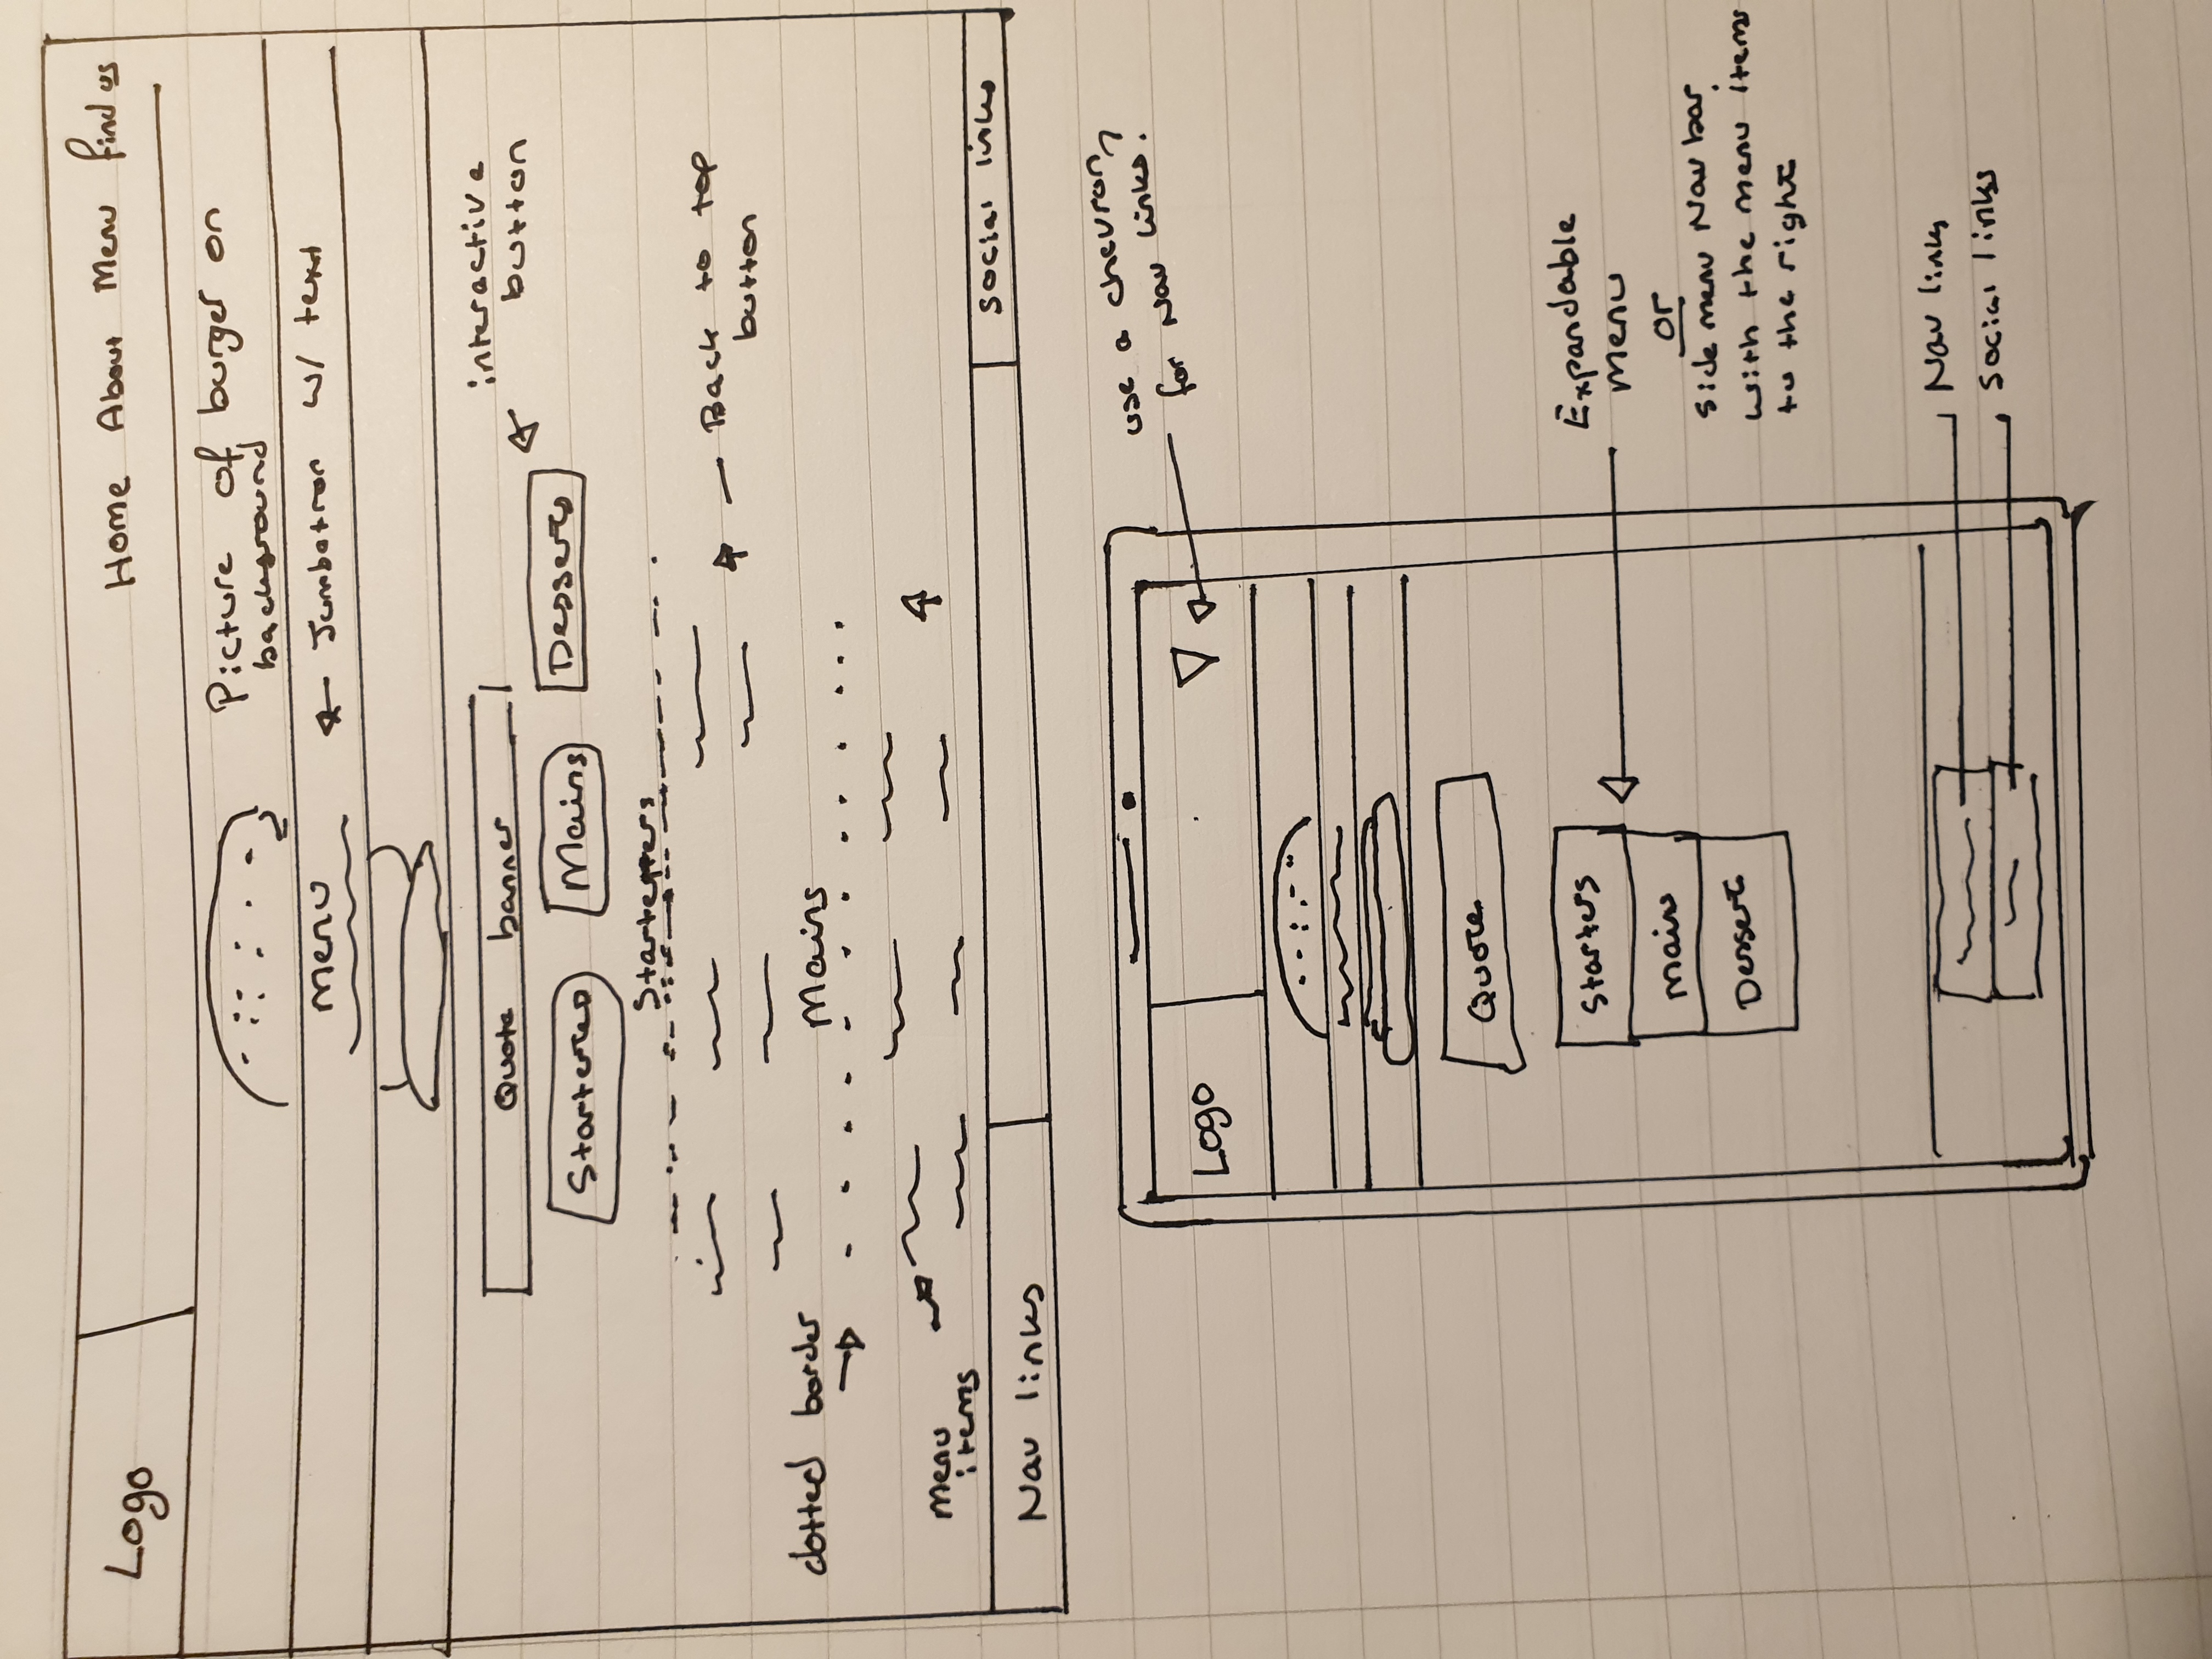 Logo
Home About Menu find us
Picture of burger on
background
Menu
Jumbotron w/ text
Quote banner
interactive
button
Mains
Desserts
Back to top
button
dotted border
Mains
menu
items
Nav links
Social links
use a chevron
for Nav links?
Logo
Quote
Starters
Main
Dessert
Expandable
menu
or
Side menu Nav bar
with the menu items
to the right
Nav links
Social links